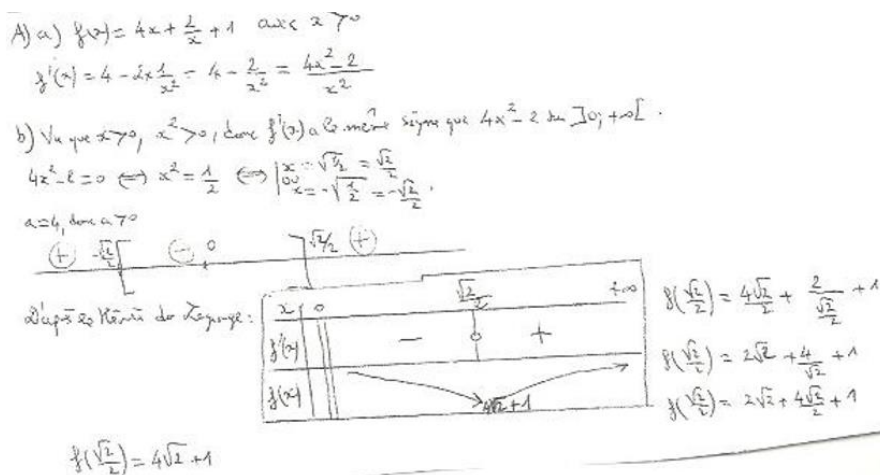 A) a) f(x) = 4x + 2/x + 1 avec x > 0
f'(x) = 4 - 2×1/x² = 4 - 2/x² = (4x² - 2)/x²
b) Vu que x>0, x²>0, donc f'(x) a le même signe que 4x²-2 sur ]0; +∞[.
4x²-2=0 ⟺ x² = 1/2 ⟺ | x = √1/2 = √2/2
ou x = -√1/2 = -√2/2.
a=4, donc a>0
+ -√2/2 [ - 0 ] √2/2 +
D'après le théorème de Lagrange :
x 0 √2/2 +∞
f'(x) - 0 +
f(x) 4√2+1
f(√2/2) = 4√2/2 + 2/(√2/2) + 1
f(√2/2) = 2√2 + 4/√2 + 1
f(√2/2) = 2√2 + 4√2/2 + 1
f(√2/2) = 4√2 + 1